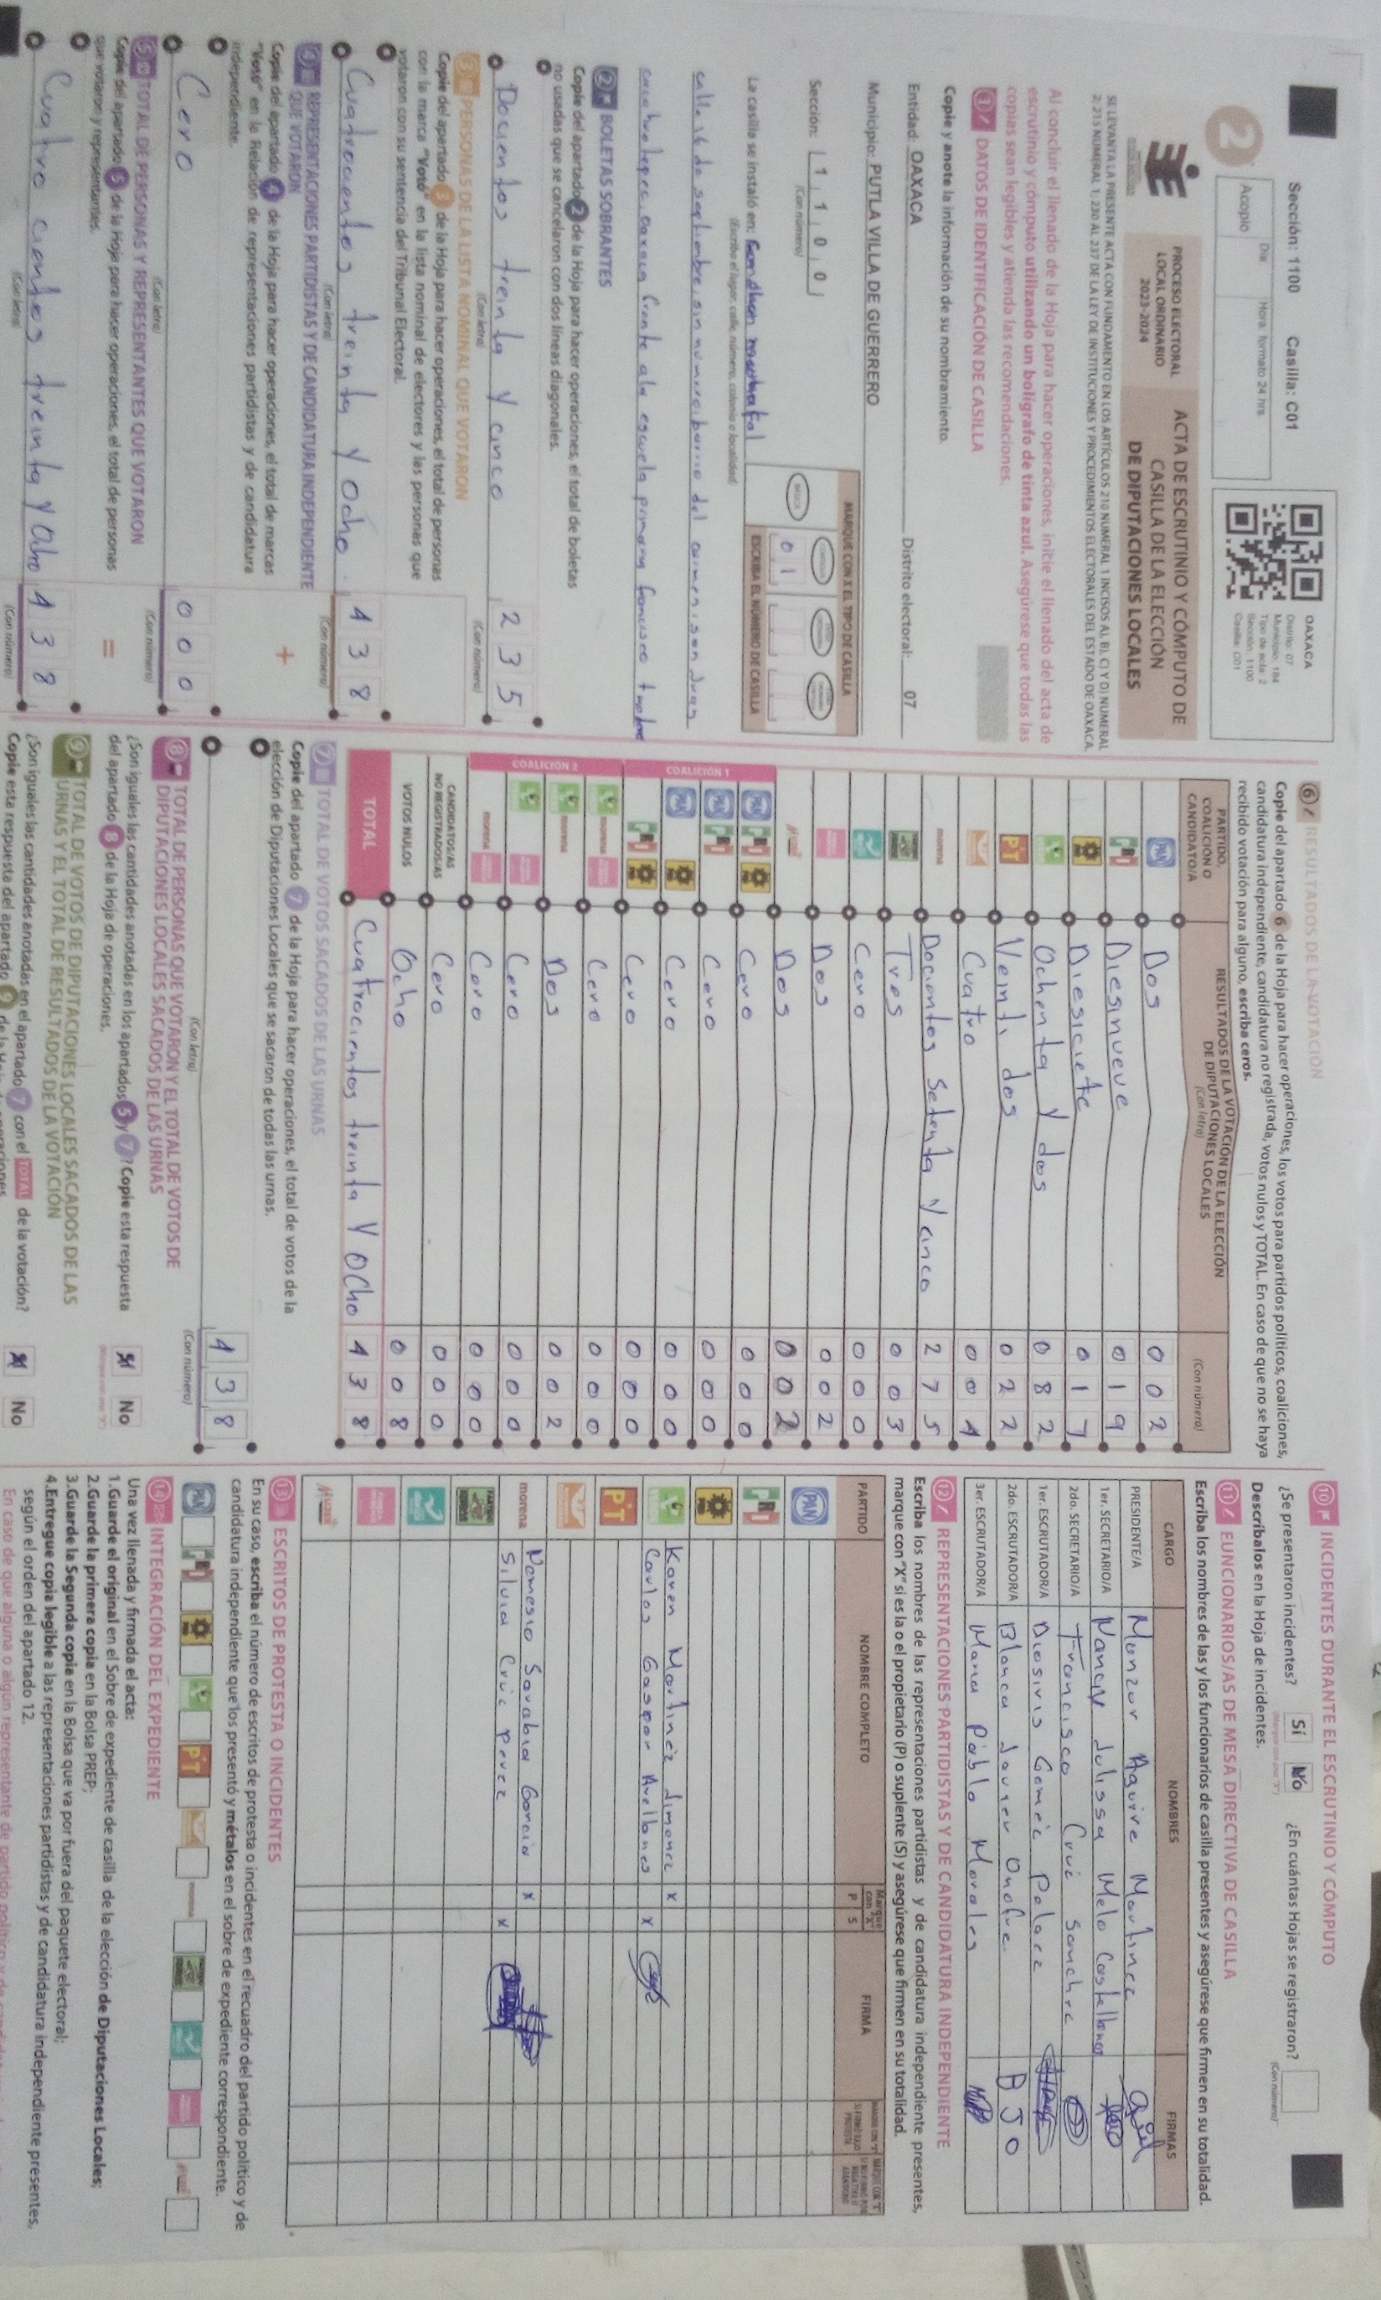 Sección: 1100 Casilla: C01
2
Día Hora: formato 24 hrs.
Acopio
OAXACA
Distrito: 07
Municipio: 184
Tipo de acta: 2
Sección: 1100
Casilla: C01
PROCESO ELECTORAL
LOCAL ORDINARIO
2023-2024
ACTA DE ESCRUTINIO Y CÓMPUTO DE
CASILLA DE LA ELECCIÓN
DE DIPUTACIONES LOCALES
SE LEVANTA LA PRESENTE ACTA CON FUNDAMENTO EN LOS ARTÍCULOS 210 NUMERAL 1 INCISOS A), B), C) Y D) NUMERAL
2; 213 NUMERAL 1; 230 AL 237 DE LA LEY DE INSTITUCIONES Y PROCEDIMIENTOS ELECTORALES DEL ESTADO DE OAXACA.
Al concluir el llenado de la Hoja para hacer operaciones, inicie el llenado del acta de
escrutinio y cómputo utilizando un bolígrafo de tinta azul. Asegúrese que todas las
copias sean legibles y atienda las recomendaciones.
1 DATOS DE IDENTIFICACIÓN DE CASILLA
Copie y anote la información de su nombramiento.
Entidad: OAXACA Distrito electoral: 07
Municipio: PUTLA VILLA DE GUERRERO
Sección: 1 1 0 0
(Con número)
MARQUE CON X EL TIPO DE CASILLA
0 1
ESCRIBA EL NÚMERO DE CASILLA
La casilla se instaló en:
(Escriba el lugar, calle, número, colonia o localidad)
calle 16 de septiembre sin numero barrio del carmen, san Juan
oaxaca frente a la escuela primaria
2 BOLETAS SOBRANTES
Copie del apartado 2 de la Hoja para hacer operaciones, el total de boletas
no usadas que se cancelaron con dos líneas diagonales.
Docientos treinta y cinco 2 3 5
(Con letra) (Con número)
3 PERSONAS DE LA LISTA NOMINAL QUE VOTARON
Copie del apartado 3 de la Hoja para hacer operaciones, el total de personas
con la marca "Votó" en la lista nominal de electores y las personas que
votaron con su sentencia del Tribunal Electoral.
Cuatrocientos treinta y ocho 4 3 8
(Con letra) (Con número)
4 REPRESENTACIONES PARTIDISTAS Y DE CANDIDATURA INDEPENDIENTE
QUE VOTARON
Copie del apartado 4 de la Hoja para hacer operaciones, el total de marcas
"Votó" en la Relación de representaciones partidistas y de candidatura
independiente.
+
Cero 0 0 0
(Con letra) (Con número)
5 TOTAL DE PERSONAS Y REPRESENTANTES QUE VOTARON
Copie del apartado 5 de la Hoja para hacer operaciones, el total de personas
que votaron y representantes.
=
Cuatro cientos treinta y Ocho 4 3 8
(Con letra) (Con número)
6 RESULTADOS DE LA VOTACIÓN
Copie del apartado 6 de la Hoja para hacer operaciones, los votos para partidos políticos, coaliciones,
candidatura independiente, candidatura no registrada, votos nulos y TOTAL. En caso de que no se haya
recibido votación para alguno, escriba ceros.
PARTIDO,
COALICIÓN O
CANDIDATO/A
RESULTADOS DE LA VOTACIÓN DE LA ELECCIÓN
DE DIPUTACIONES LOCALES
(Con letra) (Con número)
PAN Dos 0 0 2
PRI Diesinueve 0 1 9
Diesiciete 0 1 7
Ochenta y dos 0 8 2
PT Veinti dos 0 2 2
Cuatro 0 0 4
morena Docientos Setenta y cinco 2 7 5
Tres 0 0 3
Cero 0 0 0
Dos 0 0 2
Dos 0 0 2
COALICIÓN 1
PAN PRI Cero 0 0 0
PAN PRI Cero 0 0 0
PAN Cero 0 0 0
PRI Cero 0 0 0
COALICIÓN 2
morena Cero 0 0 0
morena Dos 0 0 2
Cero 0 0 0
morena Cero 0 0 0
CANDIDATOS/AS
NO REGISTRADOS/AS Cero 0 0 0
VOTOS NULOS Ocho 0 0 8
TOTAL Cuatrocientos treinta y Ocho 4 3 8
7 TOTAL DE VOTOS SACADOS DE LAS URNAS
Copie del apartado 7 de la Hoja para hacer operaciones, el total de votos de la
elección de Diputaciones Locales que se sacaron de todas las urnas.
4 3 8
(Con letra) (Con número)
8 TOTAL DE PERSONAS QUE VOTARON Y EL TOTAL DE VOTOS DE
DIPUTACIONES LOCALES SACADOS DE LAS URNAS
¿Son iguales las cantidades anotadas en los apartados 5 y 7? Copie esta respuesta
del apartado 8 de la Hoja de operaciones.
Sí No
9 TOTAL DE VOTOS DE DIPUTACIONES LOCALES SACADOS DE LAS
URNAS Y EL TOTAL DE RESULTADOS DE LA VOTACIÓN
¿Son iguales las cantidades anotadas en el apartado 7 con el TOTAL de la votación?
Copie esta respuesta del apartado 9 de la Hoja de operaciones
Sí No
10 INCIDENTES DURANTE EL ESCRUTINIO Y CÓMPUTO
¿Se presentaron incidentes? Sí No ¿En cuántas Hojas se registraron?
(Con número)
Descríbalos en la Hoja de incidentes.
11 FUNCIONARIOS/AS DE MESA DIRECTIVA DE CASILLA
Escriba los nombres de las y los funcionarios de casilla presentes y asegúrese que firmen en su totalidad.
CARGO NOMBRES FIRMAS
PRESIDENTE/A Monzor Aguirre Martinez
1er. SECRETARIO/A Nancy Julissa Melo Castellanos
2do. SECRETARIO/A Francisco Cruz Sanchez
1er. ESCRUTADOR/A Diosiris Gomez Palacc
2do. ESCRUTADOR/A Blanca Javier Onofre BJO
3er. ESCRUTADOR/A Maria Pablo Morales
12 REPRESENTACIONES PARTIDISTAS Y DE CANDIDATURA INDEPENDIENTE
Escriba los nombres de las representaciones partidistas y de candidatura independiente presentes,
marque con "X" si es la o el propietario (P) o suplente (S) y asegúrese que firmen en su totalidad.
PARTIDO NOMBRE COMPLETO Marque con "X" P S FIRMA
PAN
PRI
Karen Martinez Jimenez x
Carlos Gaspar Avellanes x
PT
morena Nemesio Sarabia Garcia x
Silvia Cruz perez x
13 ESCRITOS DE PROTESTA O INCIDENTES
En su caso, escriba el número de escritos de protesta o incidentes en el recuadro del partido político y de
candidatura independiente que los presentó y métalos en el sobre de expediente correspondiente.
PAN PRI PT
14 INTEGRACIÓN DEL EXPEDIENTE
Una vez llenada y firmada el acta:
1.Guarde el original en el Sobre de expediente de casilla de la elección de Diputaciones Locales;
2.Guarde la primera copia en la Bolsa PREP;
3.Guarde la Segunda copia en la Bolsa que va por fuera del paquete electoral;
4.Entregue copia legible a las representaciones partidistas y de candidatura independiente presentes,
según el orden del apartado 12.
En caso de que alguna o algún representante de partido político